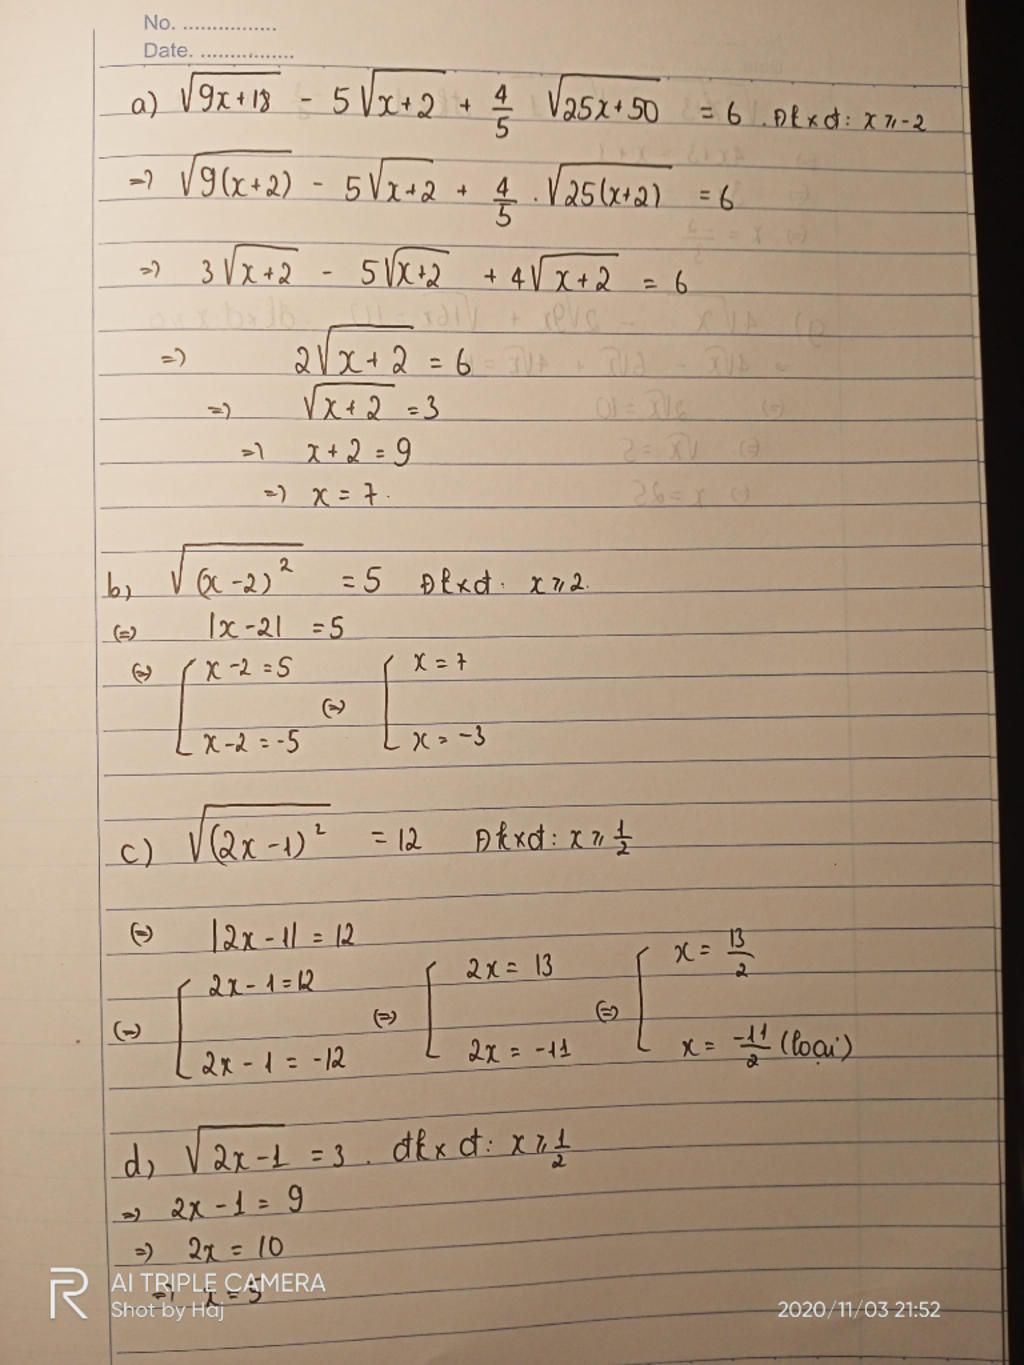 No. ................
Date. ................
a) √(9x+18) - 5√(x+2) + 4/5 √(25x+50) = 6 . Đkxđ: x ⩾ -2
=> √(9(x+2)) - 5√(x+2) + 4/5 . √(25(x+2)) = 6
=> 3√(x+2) - 5√(x+2) + 4√(x+2) = 6
=> 2√(x+2) = 6
=> √(x+2) = 3
=> x+2 = 9
=> x = 7.
b, √((x-2)²) = 5 Đkxđ. x ⩾ 2.
(=) |x-2| = 5
(=) [ x-2 = 5 (=) [ x = 7
x-2 = -5 x = -3
c) √((2x-1)²) = 12 Đkxđ: x ⩾ 1/2
(=) |2x-1| = 12
(=) [ 2x-1 = 12 (=) [ 2x = 13 (=) [ x = 13/2
2x-1 = -12 2x = -11 x = -11/2 (loại)
d, √(2x-1) = 3 . đkxđ: x ⩾ 1/2
=> 2x-1 = 9
=> 2x = 10
=> x = 5
AI TRIPLE CAMERA
Shot by Haj
2020/11/03 21:52